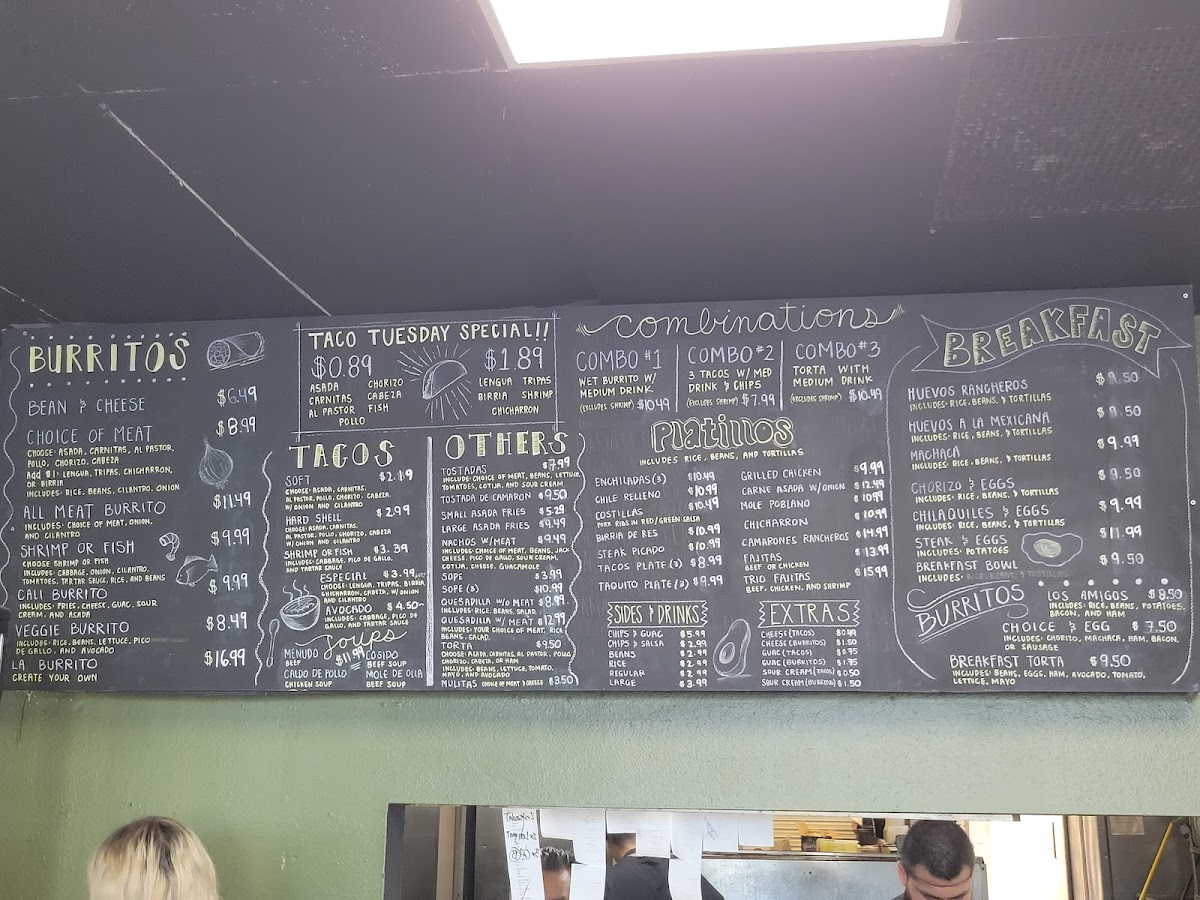 BURRITOS
BEAN & CHEESE $6.49
CHOICE OF MEAT $8.99
CHOOSE: ASADA, CARNITAS, AL PASTOR,
POLLO, CHORIZO, CABEZA
Add $1: LENGUA, TRIPAS, CHICHARRON,
OR BIRRIA
INCLUDES: RICE, BEANS, CILANTRO, ONION
ALL MEAT BURRITO $11.49
INCLUDES: CHOICE OF MEAT, ONION,
AND CILANTRO
SHRIMP OR FISH $9.99
CHOOSE SHRIMP OR FISH
INCLUDES: CABBAGE, ONION, CILANTRO,
TOMATOES, TARTAR SAUCE, RICE, AND BEANS
CALI BURRITO $9.99
INCLUDES: FRIES, CHEESE, GUAC, SOUR
CREAM, AND ASADA
VEGGIE BURRITO $8.49
INCLUDES: RICE, BEANS, LETTUCE, PICO
DE GALLO, AND AVOCADO
LA BURRITO $16.99
CREATE YOUR OWN
TACO TUESDAY SPECIAL!!
$0.89
ASADA CHORIZO
CARNITAS CABEZA
AL PASTOR FISH
POLLO
$1.89
LENGUA TRIPAS
BIRRIA SHRIMP
CHICHARRON
TACOS
SOFT $2.19
CHOOSE ASADA, CARNITAS,
AL PASTOR, POLLO, CHORIZO, CABEZA,
W/ONION AND CILANTRO
HARD SHELL $2.99
CHOOSE: ASADA, CARNITAS,
AL PASTOR, POLLO, CHORIZO, CABEZA,
W/ ONION AND CILANTRO
SHRIMP OR FISH $3.39
INCLUDES: CABBAGE, PICO DE GALLO,
AND TARTAR SAUCE
ESPECIAL $3.99
CHOOSE: LENGUA, TRIPAS, BIRRIA
CHICHARRON, CABEZA, W/ONION
AND CILANTRO
AVOCADO $4.50
INCLUDES: CABBAGE, PICO DE
GALLO, AND TARTAR SAUCE
Soups
$11.99
MENUDO
BEEF
CALDO DE POLLO
CHICKEN SOUP
COSIDO
BEEF SOUP
MOLE DE OLLA
BEEF SOUP
OTHERS
TOSTADAS $7.99
INCLUDE: CHOICE OF MEAT, BEANS, LETTUCE,
TOMATOES, COTIJA, AND SOUR CREAM
TOSTADA DE CAMARON $9.50
SMALL ASADA FRIES $5.29
LARGE ASADA FRIES $9.49
NACHOS W/MEAT $9.49
INCLUDES: CHOICE OF MEAT, BEANS, JACK
CHEESE, PICO DE GALLO, SOUR CREAM,
COTIJA, CHEESE, GUACAMOLE
SOPE $3.99
SOPE (3) $10.99
QUESADILLA W/O MEAT $8.99
INCLUDES: RICE, BEANS, SALAD
QUESADILLA W/ MEAT $12.99
INCLUDES: YOUR CHOICE OF MEAT, RICE
BEANS, SALAD
TORTA $9.50
CHOOSE: ASADA, CARNITAS, AL PASTOR, POLLO,
CHORIZO, CABEZA, OR HAM
INCLUDES: BEANS, LETTUCE, TOMATO,
MAYO, AND AVOCADO
MULITAS CHOICE OF MEAT & CHEESE $3.50
combinations
COMBO #1
WET BURRITO W/
MEDIUM DRINK
(EXCLUDES SHRIMP) $10.49
COMBO #2
3 TACOS W/ MED
DRINK & CHIPS
(EXCLUDES SHRIMP) $7.99
COMBO #3
TORTA WITH
MEDIUM DRINK
(EXCLUDES SHRIMP) $10.49
Platillos
INCLUDES RICE, BEANS, AND TORTILLAS
ENCHILADAS (3) $10.49
CHILE RELLENO $10.99
COSTILLAS $10.49
PORK RIBS IN RED/GREEN SALSA
BIRRIA DE RES $10.99
STEAK PICADO $10.99
TACOS PLATE (3) $8.99
TAQUITO PLATE (3) $9.99
GRILLED CHICKEN $9.99
CARNE ASADA W/ONION $12.49
MOLE POBLANO $10.99
CHICHARRON $10.99
CAMARONES RANCHEROS $14.99
FAJITAS $13.99
BEEF OR CHICKEN
TRIO FAJITAS $15.99
BEEF, CHICKEN, AND SHRIMP
SIDES & DRINKS
CHIPS & GUAC $5.99
CHIPS & SALSA $2.99
BEANS $2.99
RICE $2.99
REGULAR $2.99
LARGE $3.99
EXTRAS
CHEESE (TACOS) $0.49
CHEESE (BURRITOS) $1.50
GUAC (TACOS) $0.75
GUAC (BURRITOS) $1.75
SOUR CREAM (TACOS) $0.50
SOUR CREAM (BURRITOS) $1.50
BREAKFAST
HUEVOS RANCHEROS $9.50
INCLUDES: RICE, BEANS, & TORTILLAS
HUEVOS A LA MEXICANA $9.50
INCLUDES: RICE, BEANS, & TORTILLAS
MACHACA $9.99
INCLUDES: RICE, BEANS, & TORTILLAS
CHORIZO & EGGS $9.50
INCLUDES: RICE, BEANS, & TORTILLAS
CHILAQUILES & EGGS $9.99
INCLUDES: RICE, BEANS, & TORTILLAS
STEAK & EGGS $11.99
INCLUDES: POTATOES
BREAKFAST BOWL $9.50
INCLUDES: RICE, BEANS, & TORTILLAS
BURRITOS
LOS AMIGOS $8.50
INCLUDES: RICE, BEANS, POTATOES,
BACON, AND HAM
CHOICE & EGG $7.50
INCLUDES: CHORIZO, MACHACA, HAM, BACON,
OR SAUSAGE
BREAKFAST TORTA $9.50
INCLUDES: BEANS, EGGS, HAM, AVOCADO, TOMATO,
LETTUCE, MAYO